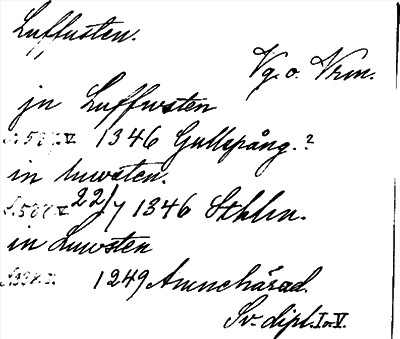 Luffusten.
Vg. o. Vrm.
jn Luffwsten
1346 Gullspång.?
in luwsten.
22/7 1346 Sthlm.
in Luwsten
1249 Amnehärad.
Sv. dipl. I o. V.